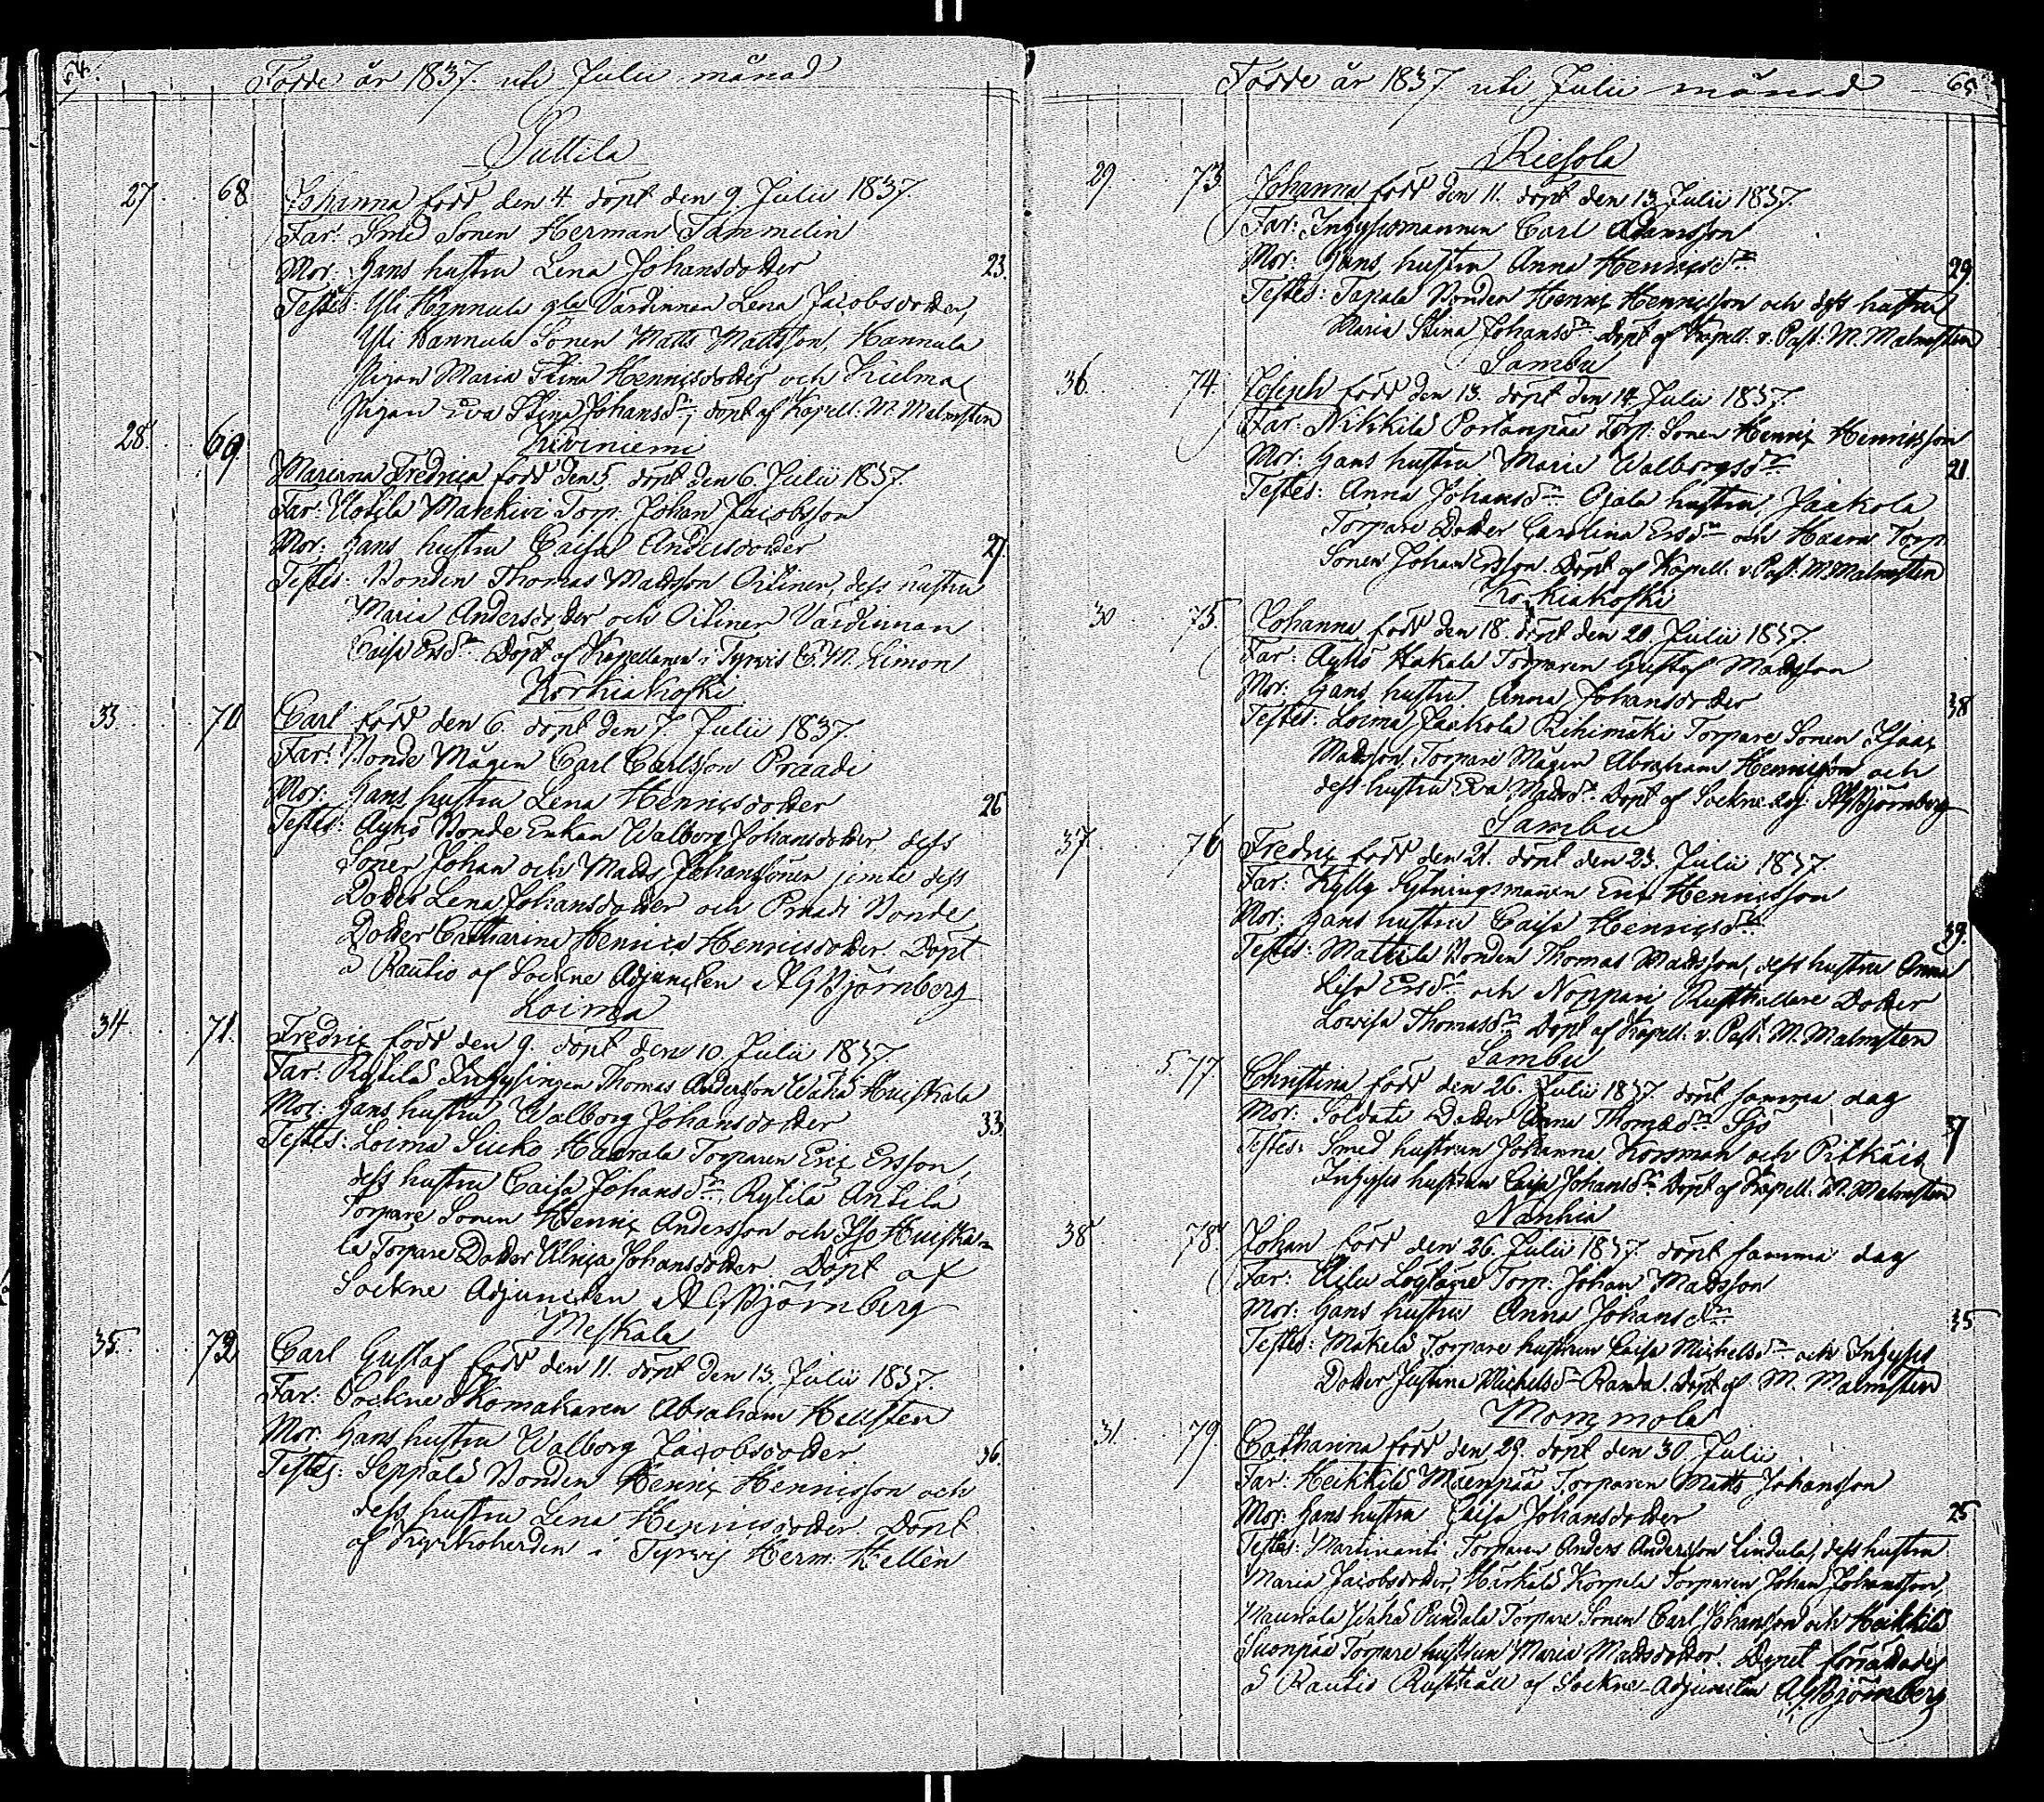 64.
Födde år 1837. uti Julii månad
Suttila
27. 68 Johanna född den 4 döpt den 9 Julii 1837.
Far: Smed Sonen Herman Tammelin
Mor: Hans hustru Lena Johansdotter 23.
Testes: Yli Hannula gla Värdinnan Lena Jacobsdotter,
Yli Hannula Sonen Matts Mattsson, Hannula
Pigan Maria Stina Henricsdotter och Kulma
Pigan Eva Stina Johansdr, döpt af Kapell. M. Malmsten
Kiviniemi
28. 69 Marianna Fredrica född den 5. döpt den 6. Julii 1837.
Far: Uotila Matkivi Torp. Johan Jacobsson
Mor: Hans hustru Caisa Andersdotter 27.
Testes: Bonden Thomas Mattsson Oitinen, dess hustru
Maria Andersdotter och Oitinen Värdinnan
Caisa Ersdr. Döpt af Kapellanen i Tyrvis C. M. Limon
Korkiakoski
33 70 Carl född den 6. döpt den 7. Julii 1837.
Far: Bonde Mågen Carl Carlsson Praadi
Mor: Hans hustru Lena Henricsdotter 26
Testes: Äyhö Bonde Enkan Walborg Johansdotter dess
Söner Johan och Matts Johanssöner jemte dess
Dotter Lena Johansdotter och Praadi Bonde
Dotter Catharina Henrica Henricsdotter. Döpt
å Rautio af Sockne Adjuncten A G Björnberg
Loima
34 71. Fredric född den 9. döpt den 10. Julii 1837.
Far: Rostila Inhysingen Thomas Andersson Wähä Huiskala
Mor: Hans hustru Walborg Johansdotter 33.
Testes: Loima Suko Haarala Torparen Eric Ersson,
dess hustru Caisa Johansdr, Rytilä Antila
Torpare Sonen Henric Andersson och Iso Huiska-
la Torpare Dotter Ulrica Johansdotter Döpt af
Sockne Adjuncten A G Björnberg
Meskala
35. 72 Carl Gustaf född den 11. döpt den 13. Julii 1837.
Far: Sockne Skomakaren Abraham Hellsten
Mor: Hans hustru Walborg Jacobsdotter 36.
Testes: Seppälä Bonden Henric Henricsson och
dess hustru Lena Henricsdotter. Döpt
af Kyrkoherden i Tyrvis Herm. Hellén
Födde år 1837. uti Julii månad 65.
Riesola
29. 73 Johanna född den 11. döpt den 13 Julii 1837.
Far: Inhysesmannen Carl Adamsson
Mor: Hans hustru Anna Henricsdr 29.
Testes: Bonden Henric Henricsson och dess hustru
Maria Stina Johansdr. Döpt af Kapell. v. Past: M. Malmsten
Sambu
36. 74. Joseph född den 13. döpt den 14. Julii 1837.
Far: Nikkilä Portanpää Torp. Sonen Henric Henricsson
Mor: Hans hustru Maria Walborgsdr 21.
Testes: Anna Johansdr Ojala hustru, Jaakola
Torpare Dotter Carolina Ersdr och Torp.
Sonen Johan Ersson. Döpt af Kapell. v. Past: M. Malmsten
Korkiakoski
30 75. Johanna född den 18. döpt den 20 Julii 1837.
Far: Äyhö Hakala Torparen Gustaf Mattsson
Mor: Hans hustru Anna Johansdotter 38
Testes: Loima Jaakola Rihimäki Torpare Sonen Isaac
Mattsson, Torpare Mågen Abraham Henricsson och
dess hustru Eva Mattsdr. Döpt af Sockne Adj. A G Björnberg
Sambu
37. 76 Fredric född den 21. döpt den 23. Julii 1837.
Far: Kylly Sytningsmannen Eric Henricsson
Mor: Hans hustru Caisa Henricsdr 39.
Testes: Mattila Bonden Thomas Mattsson, dess hustru Anna
Lisa Ersdr och Noppari Rusthållare Dotter
Lovisa Thomasdr. Döpt af Kapell. v. Past. M. Malmsten
Sambu
5 77 Christina född den 26. Julii 1837. döpt samma dag
Mor: Soldate Dotter Anna Thomasdr Sjö 37
Testes: Smed hustrun Johanna Korsman och
Inhyses hustrun Caisa Johansdr. Döpt af Kapell. M. Malmsten
Nanhia
38 78. Johan född den 26. Julii 1837. döpt samma dag
Far: Torp: Johan Mattsson
Mor: Hans hustru Anna Johansdr 35
Testes: Mäkelä Torpare hustrun Caisa Michelsdr och Inhyses
Dotter Justina Michelsdr Randa. Döpt af M. Malmsten
Mommola
31. 79. Catharina född den 29. döpt den 30. Julii
Far: Heikkilä Mäenpää Torparen Matts Johansson
Mor: Hans hustru Caisa Johansdotter 25
Testes: Martinanti Torparen Anders Andersson Lindula, dess hustru
Maria Jacobsdotter, Härkälä Korpela Torparen Johan Johansson,
Mauriala Wähä Torpare Sonen Carl Johansson och Heikkilä
Suonpää Torpare hustrun Maria Mattsdotter. Dopet förrättades
å Rautio Rusthåll af Sockne-Adjuncten A G Björnberg